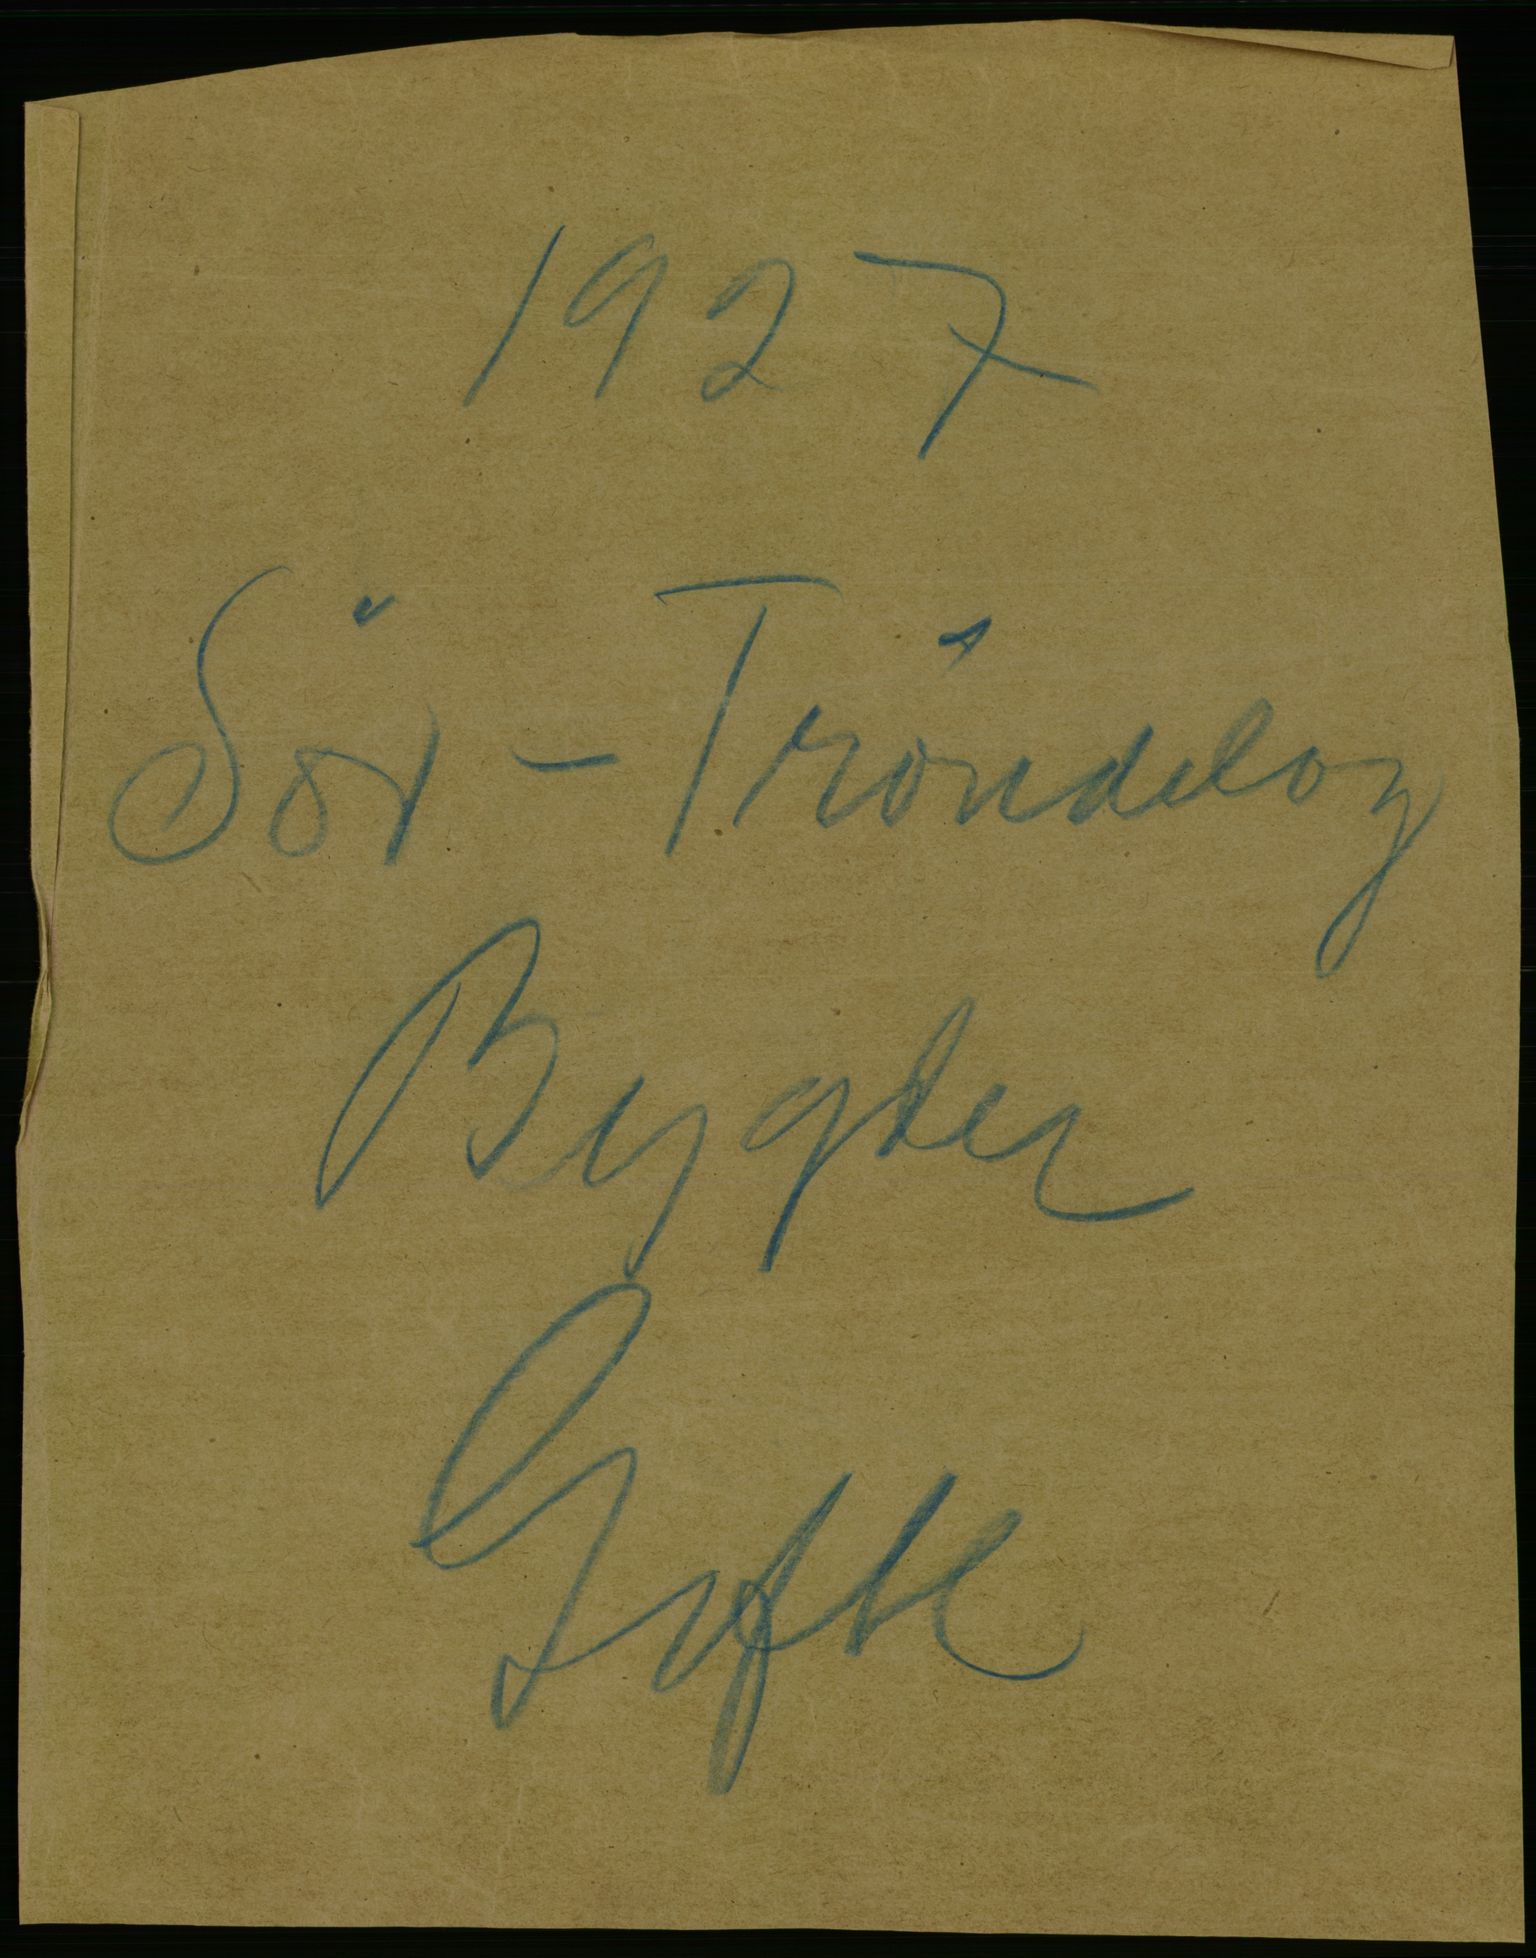 1927
Sör - Tröndelag
Bygder
Gifte